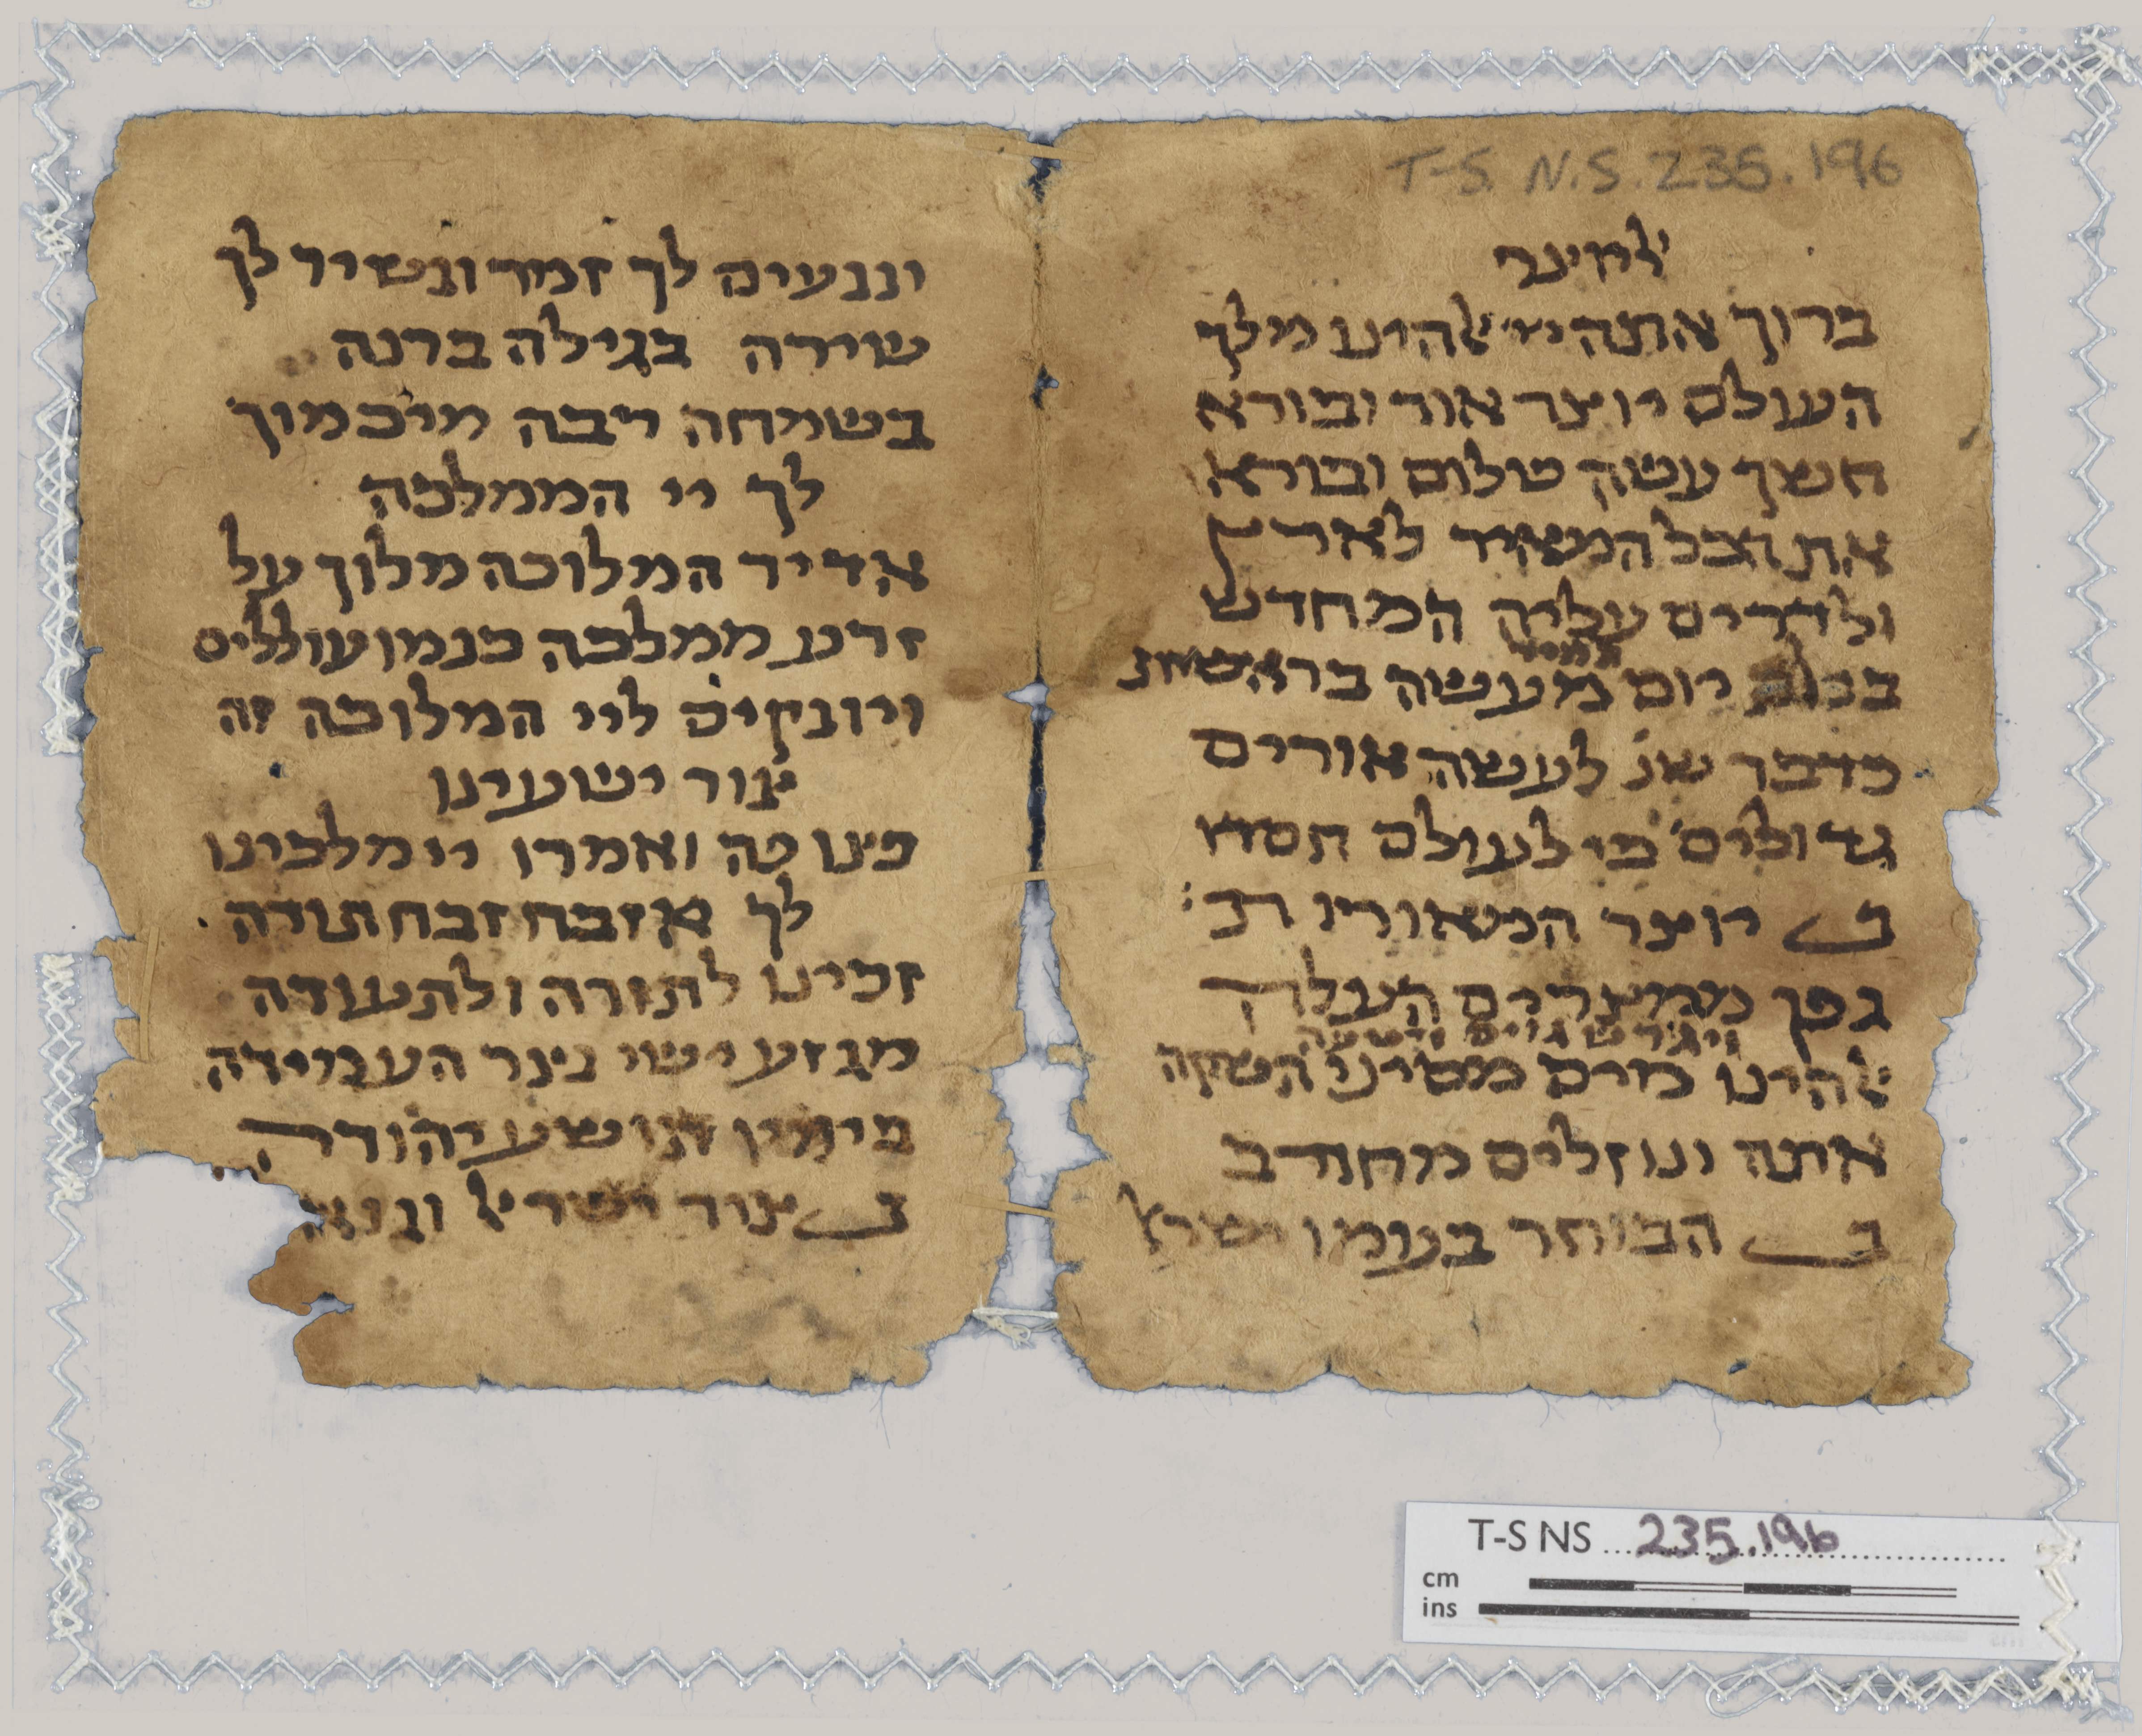 T-S. N.S. 235.196
ברוך אתה ייי אלהינו מלך
העולם יוצר אור ובורא
חשך עושה שלום ובורא
את הכל המאיר לארץ
ולדרים עליה המחדש
תמיד
בכל יום מעשה בראשית
כדבר שנ לעשה אורים
גדולים כי לעולם חסדו
ב יוצר המאורות
גפן ממצרים העלה
ויגרש גוים
אלהינו מים השקה
אתה ונוזלים מחורב
ב הבוחר בעמו ישראל
וננעים לך זמר ונשיר לך
שירה בגילה ברנה
בשמחה רבה מי כמוך
לך יי הממלכה
אדיר המלוכה מלוך על
זרע ממלכה כנמו עוללים
ויונקים ליי המלוכה זה
צור ישעינו
פצו פה ואמרו יי מלכינו
לך אזבח זבח תודה
זכינו לתורה ולתעודה
מגזע ישי נצר העמידה
בימיו תושע יהודה
ב צור ישראל וגואלו
T-S NS 235.196
cm
ins